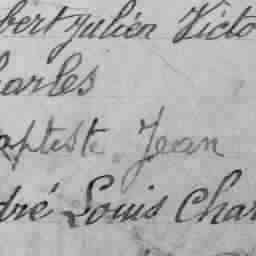 bert Julien Victo
harles
aptiste Jean
dré Louis Char